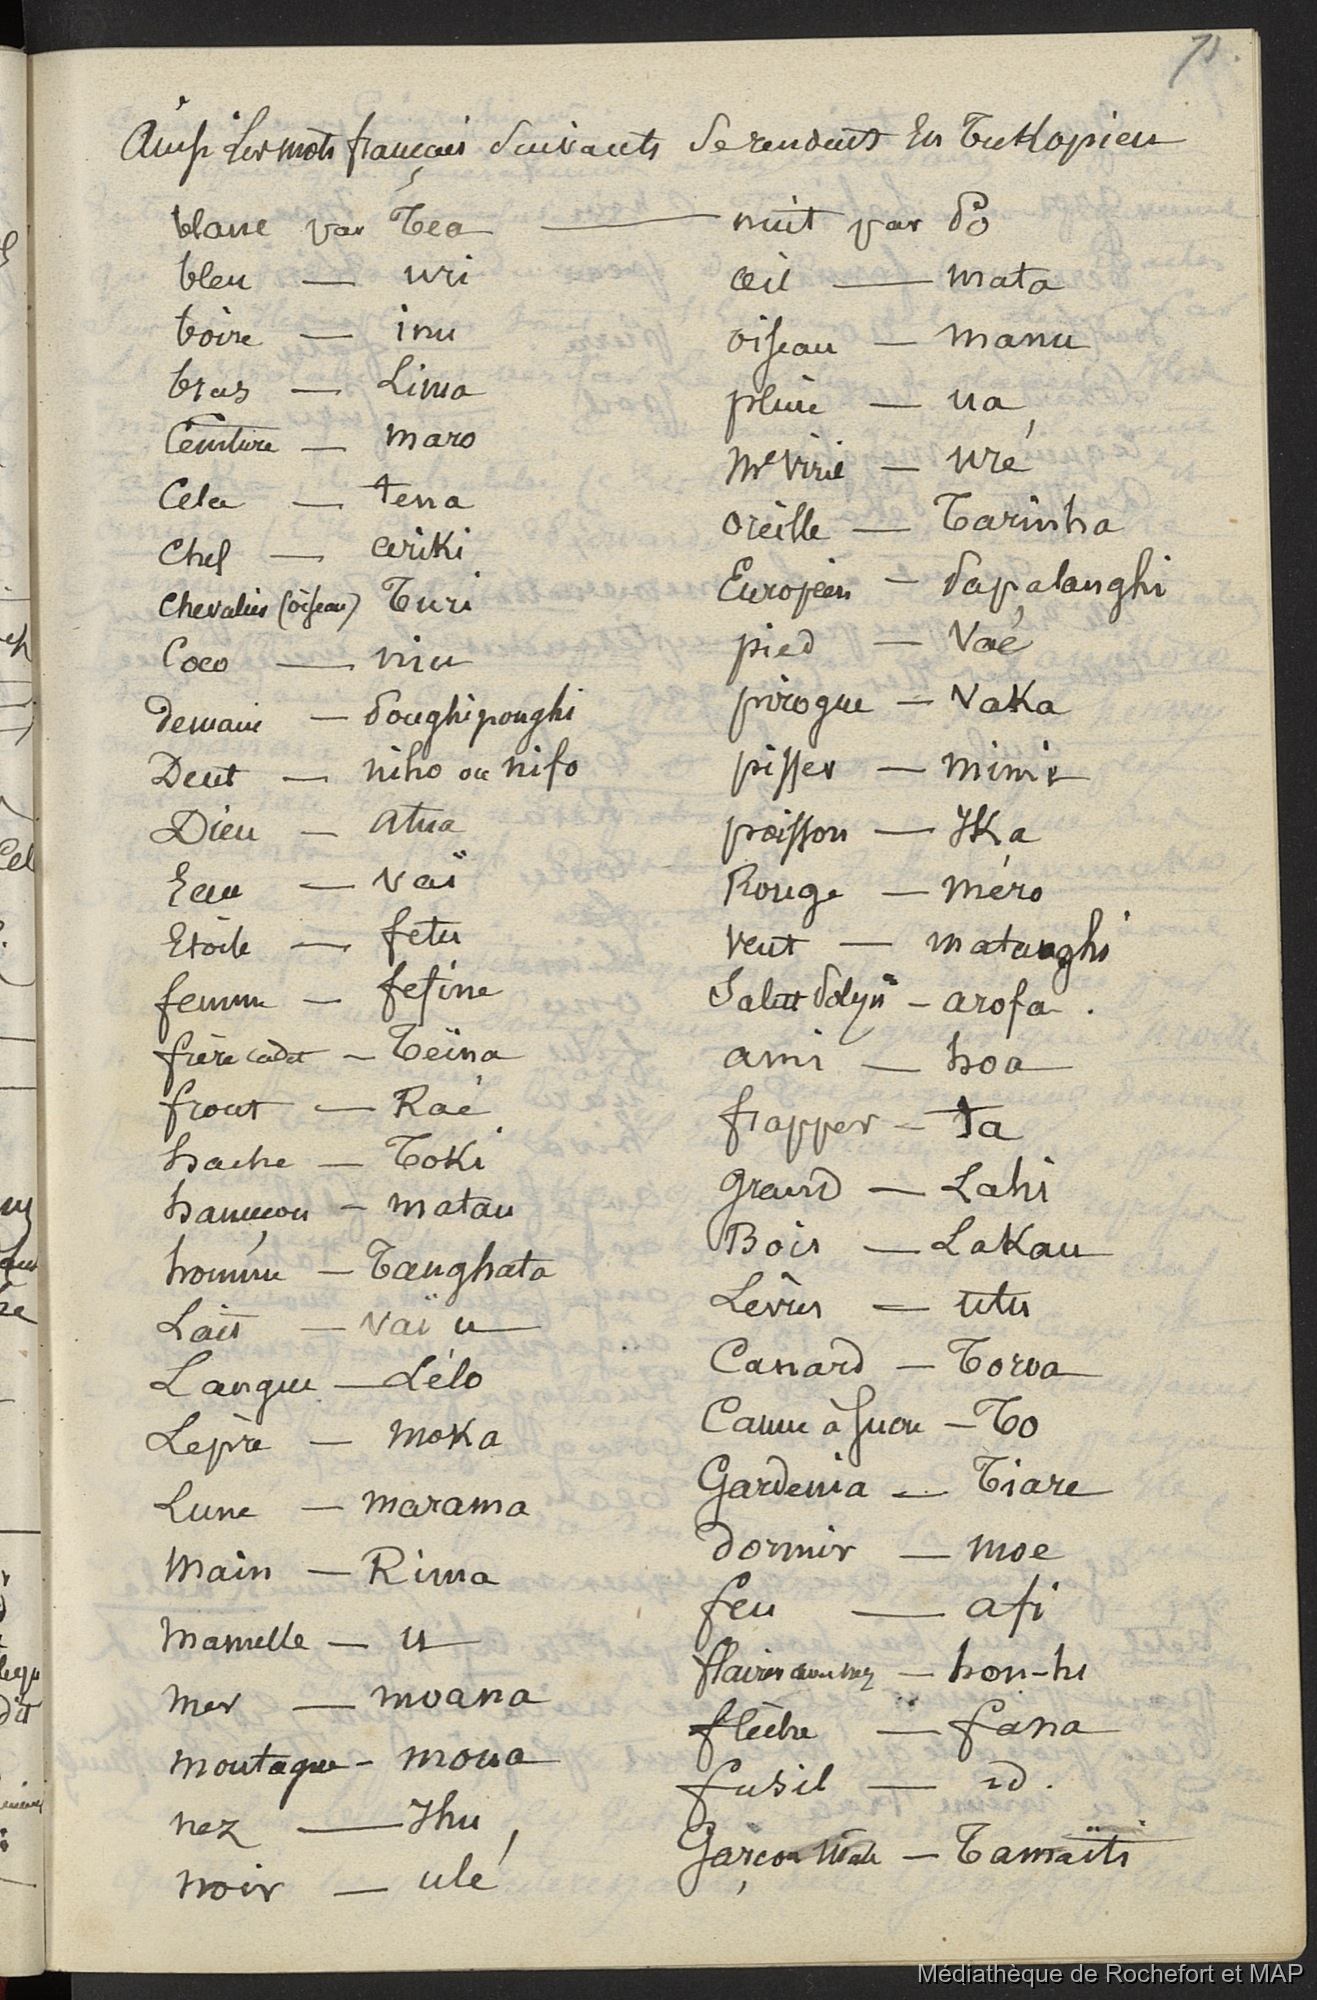 71.
Ainsi les mots français suivants se rendent en Tukopien
blanc par Tea
bleu — uri
boire — inu
bras — Lima
Ceinture — maro
Cela — tena
Chef — ariki
Chevalier (oiseau) Turi
Coco — niu
Demain — poughipoughi
Dent — niho ou nifo
Dieu — atua
Eau — vaï
Etoile — fetu
femme — fefine
frère cadet — Teïna
front — Raé
hache — Toki
hameçon — matau
homme — Taughata
Lait — vaï u
Langue — Lélo
Lèpre — moka
Lune — marama
Main — Rima
Mamelle — u
Mer — moana
Montagne — moua
nez — Ihu
noir — ulé
nuit par pô
œil — mata
oiseau — manu
pluie — ua
Mre Viril — uré
oreille — Tarinha
Européen — papalanghi
pied — Vaé
pirogue — Vaka
pisser — mimi
poisson — Ika
Rouge — méro
vent — matanghi
Salut Polyn — arofa.
ami — hoa
frapper — Ta
Grand — Lahi
Bois — Lakau
Lèvres — utu
Canard — Toroa
Canne à sucre — To
Gardenia — Tiare
Dormir — moe
feu — afi
flairer — hon-hi
flèche — fana
fusil — id.
Garçon — Tamaïti
Médiathèque de Rochefort et MAP